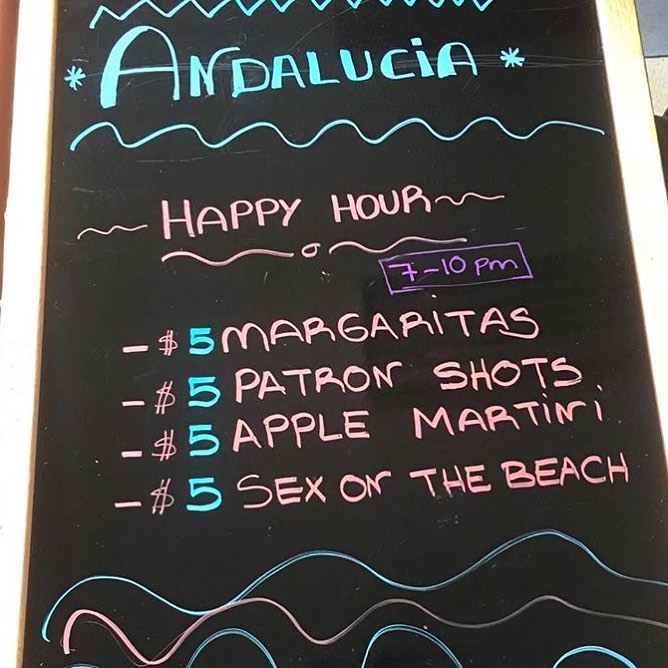 * ANDALUCiA *
HAPPY HOUR
7-10 pm
- $5 MARGARITAS
- $5 PATRON SHOTS
- $5 APPLE MARTINi
- $5 SEX ON THE BEACH